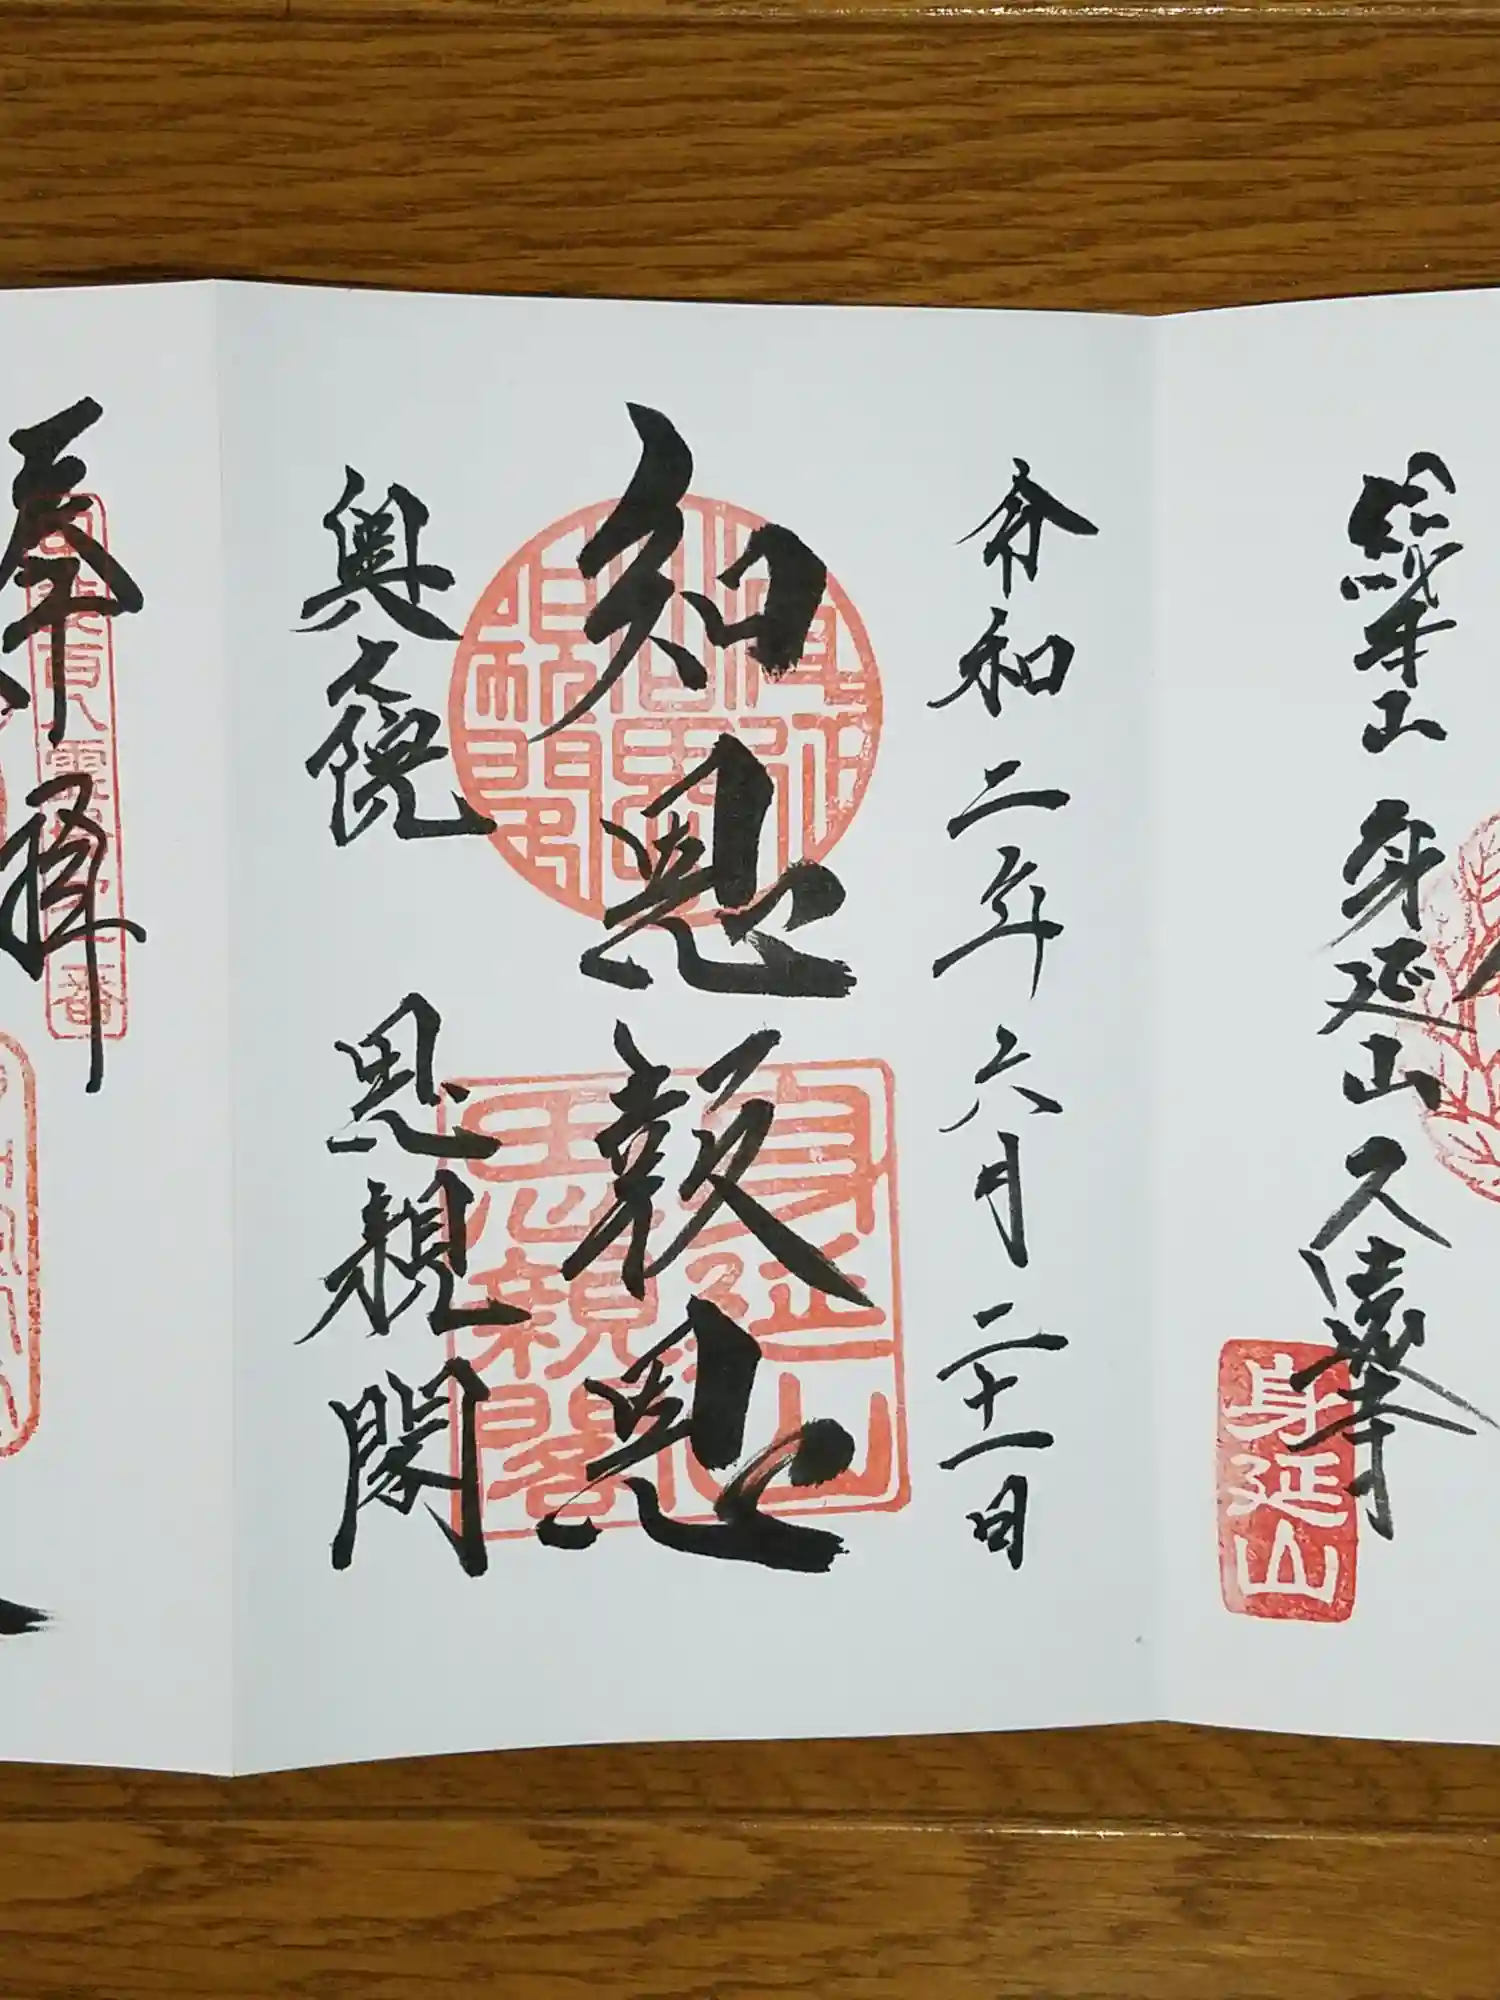 総本山 身延山久遠寺
身延山
令和二年六月二十一日
知恩報恩
身延山
思親閣
奥之院 思親閣
奉拝